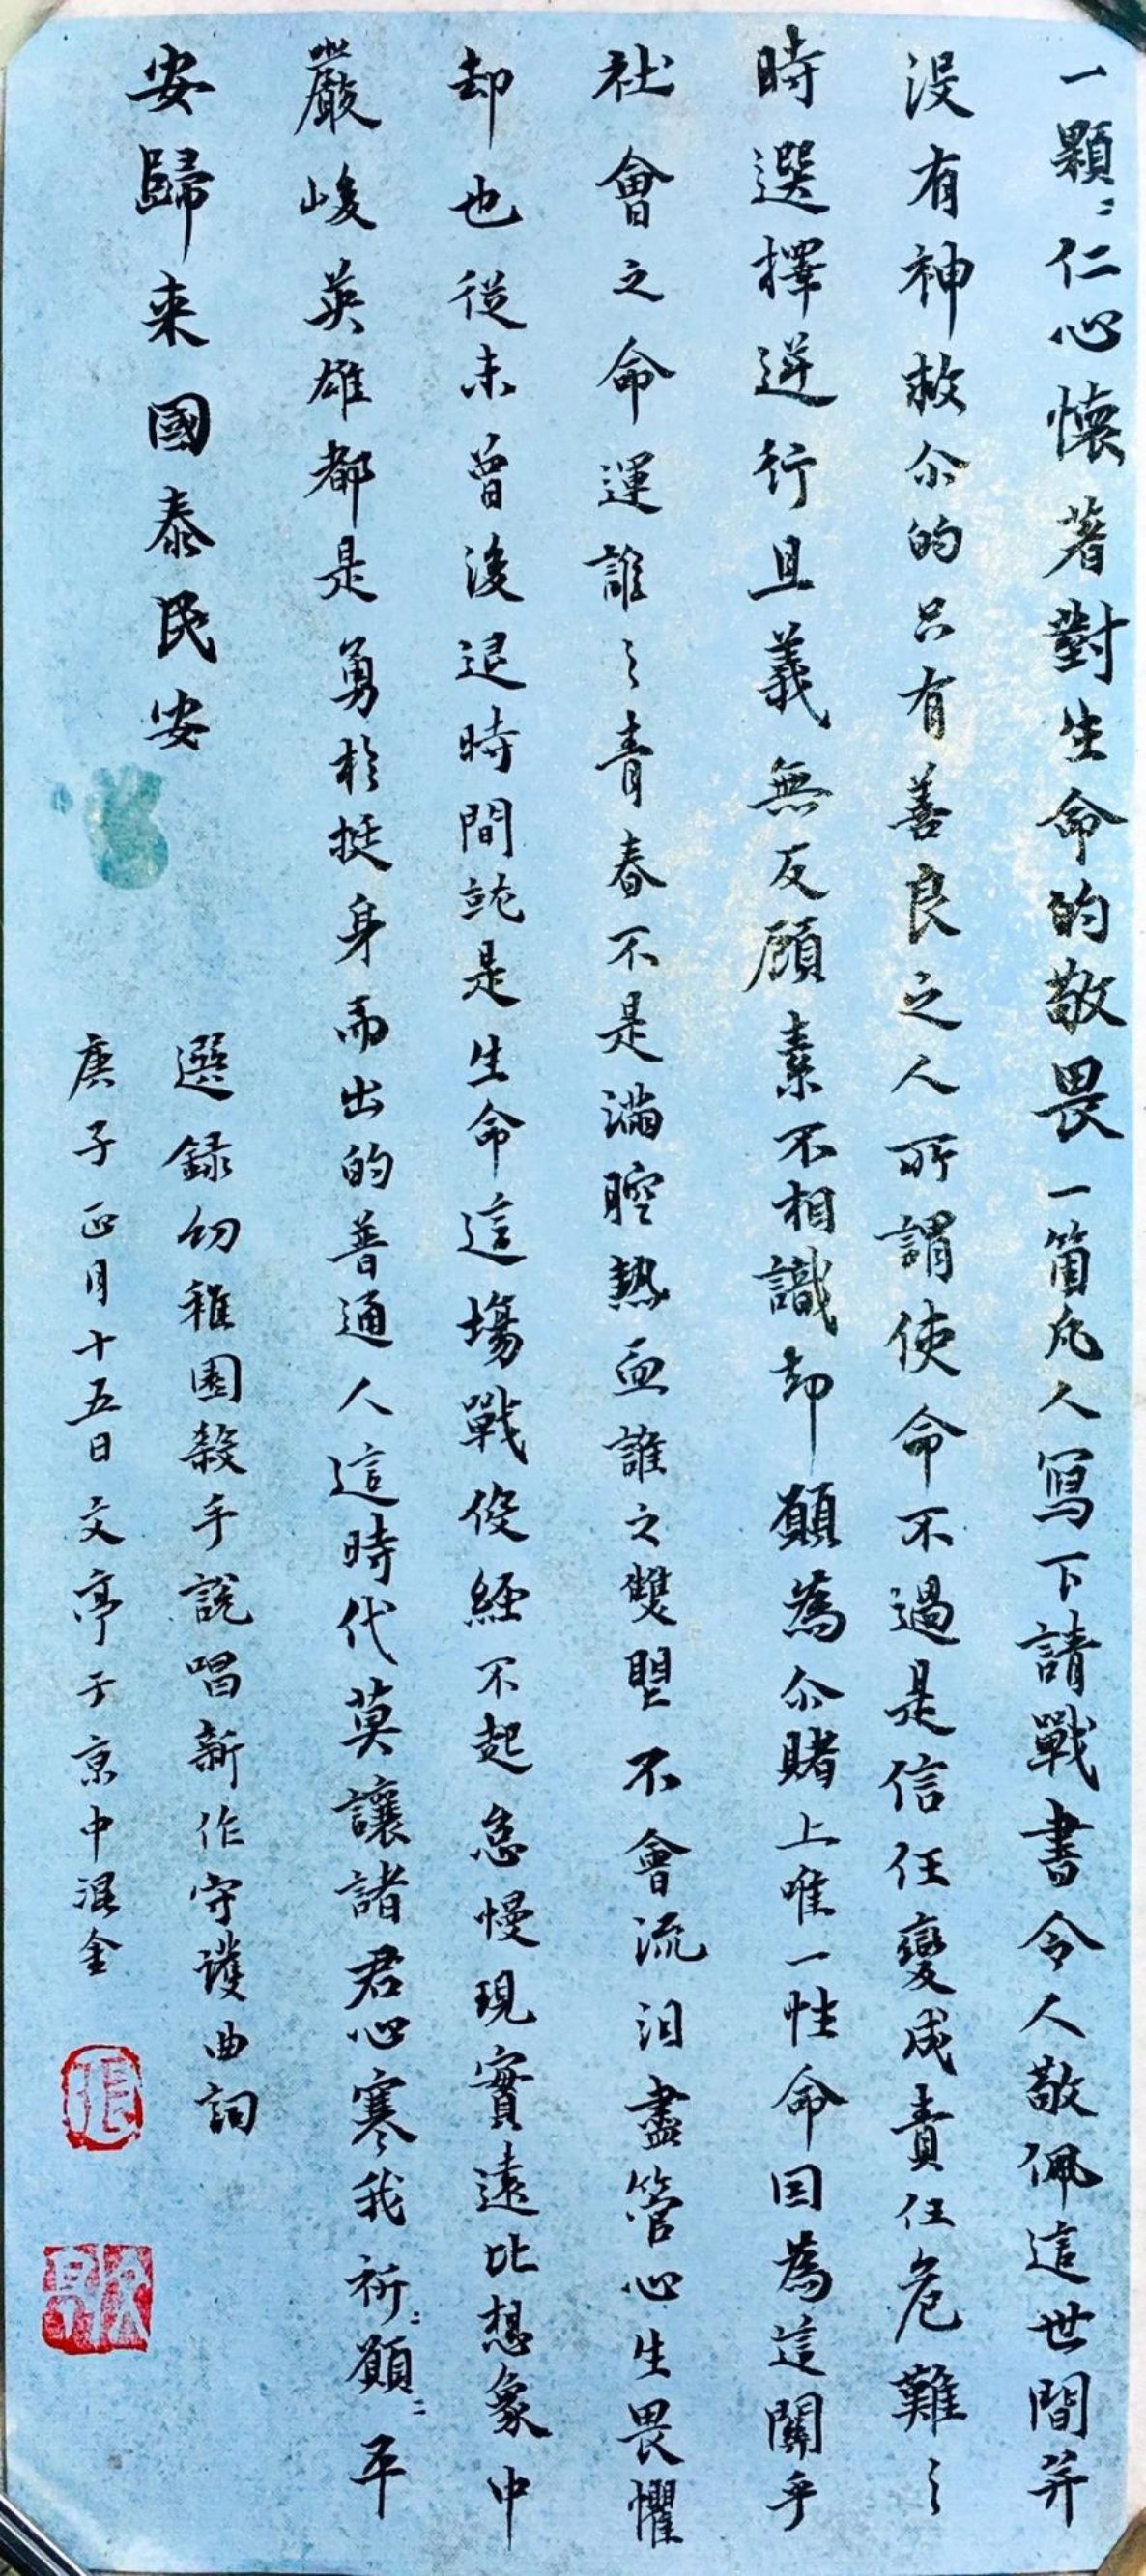 一顆〻仁心懷著對生命的敬畏一箇凡人寫下請戰書令人敬佩這世間并
没有神救尒的只有善良之人所謂使命不過是信任變成責任危難之
時選擇逆行且義無反顧素不相識却願為尒賭上唯一性命因為這關乎
社會之命運誰之青春不是滿腔熱血誰之雙眼不會流泪盡管心生畏懼
却也從未曾後退時間就是生命這場戰役經不起怠慢現實遠比想象中
嚴峻英雄都是勇於挺身而出的普通人這時代莫讓諸君心寒我祈〻願〻平
安歸来國泰民安
選録幼稚園殺手說唱新作守護曲詞
庚子正月十五日文亭于京中混金
張